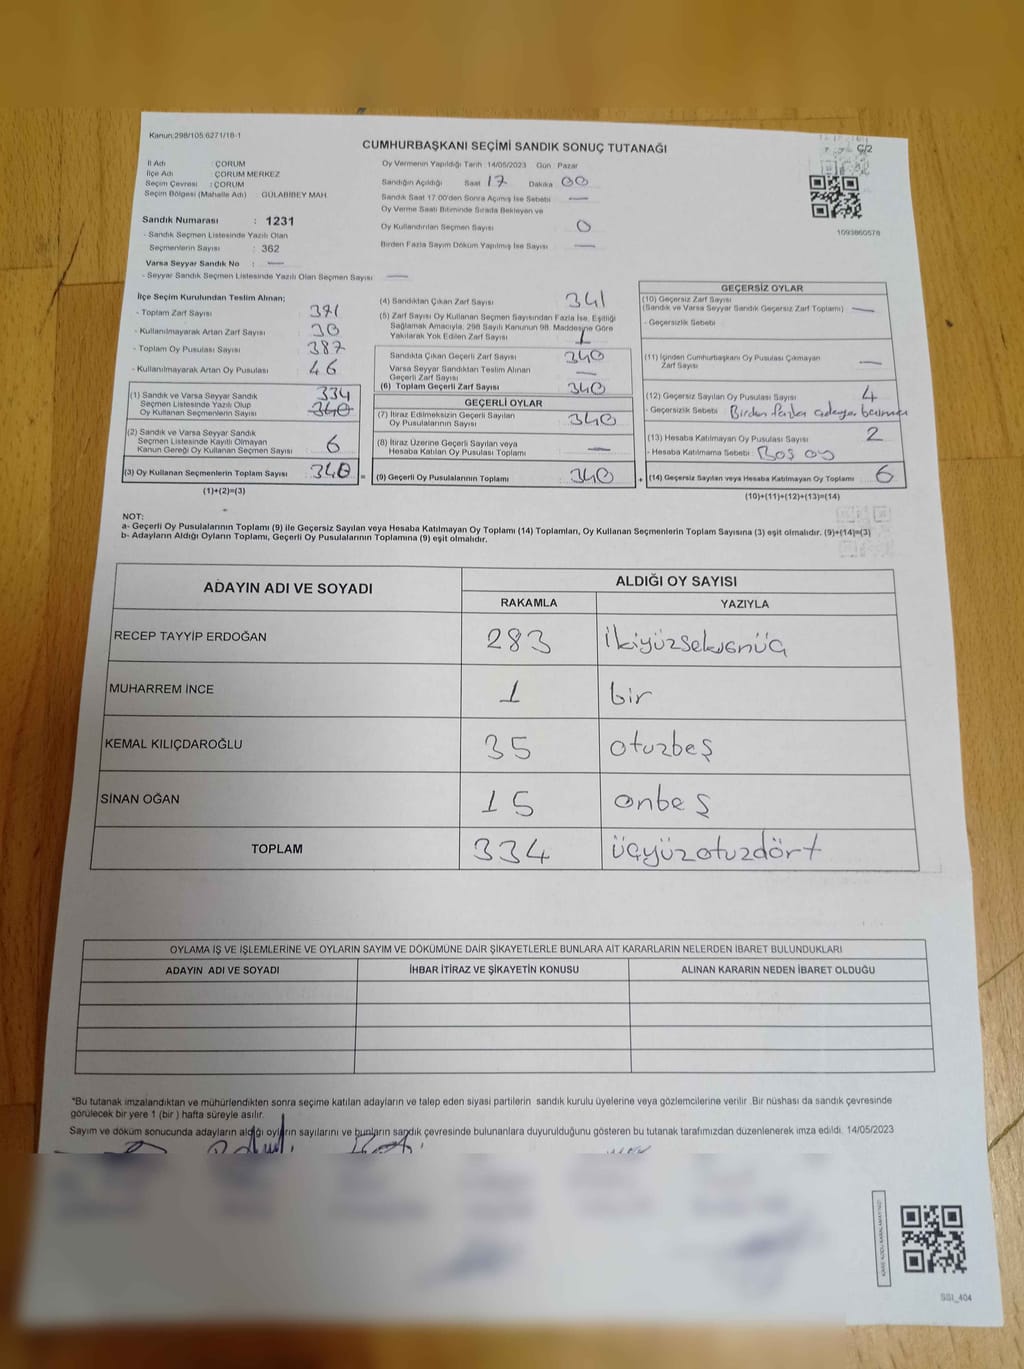 Kanun:298/105.6271/18-1
CUMHURBAŞKANI SEÇİMİ SANDIK SONUÇ TUTANAĞI
C/2
İl Adı : ÇORUM
İlçe Adı : ÇORUM MERKEZ
Seçim Çevresi : ÇORUM
Seçim Bölgesi (Mahalle Adı) GÜLABİBEY MAH.
Sandık Numarası : 1231
- Sandık Seçmen Listesinde Yazılı Olan
Seçmenlerin Sayısı : 362
Varsa Seyyar Sandık No : —
- Seyyar Sandık Seçmen Listesinde Yazılı Olan Seçmen Sayısı : —
Oy Vermenin Yapıldığı Tarih :14/05/2023 Gün : Pazar
Sandığın Açıldığı Saat 17 Dakika 00
Sandık Saat 17:00'den Sonra Açımış İse Sebebi —
Oy Verme Saati Bitiminde Sırada Bekleyen ve
Oy Kullandırılan Seçmen Sayısı 0
Birden Fazla Sayım Döküm Yapılmış İse Sayısı —
1093860578
İlçe Seçim Kurulundan Teslim Alınan;
- Toplam Zarf Sayısı 371
- Kullanılmayarak Artan Zarf Sayısı 30
- Toplam Oy Pusulası Sayısı 387
- Kullanılmayarak Artan Oy Pusulası 46
(1) Sandık ve Varsa Seyyar Sandık 334
Seçmen Listesinde Yazılı Olup
Oy Kullanan Seçmenlerin Sayısı 340
(2) Sandık ve Varsa Seyyar Sandık
Seçmen Listesinde Kayıtlı Olmayan
Kanun Gereği Oy Kullanan Seçmen Sayısı 6
(3) Oy Kullanan Seçmenlerin Toplam Sayısı 340
(1)+(2)=(3)
(4) Sandıktan Çıkan Zarf Sayısı 341
(5) Zarf Sayısı Oy Kullanan Seçmen Sayısından Fazla İse, Eşitliği
Sağlamak Amacıyla, 298 Sayılı Kanunun 98. Maddesine Göre
Yakılarak Yok Edilen Zarf Sayısı 1
Sandıkta Çıkan Geçerli Zarf Sayısı 340
Varsa Seyyar Sandıktan Teslim Alınan
Geçerli Zarf Sayısı —
(6) Toplam Geçerli Zarf Sayısı 340
GEÇERLİ OYLAR
(7) İtiraz Edilmeksizin Geçerli Sayılan
Oy Pusulalarının Sayısı 340
(8) İtiraz Üzerine Geçerli Sayılan veya
Hesaba Katılan Oy Pusulası Toplamı —
= (9) Geçerli Oy Pusulalarının Toplamı 340
GEÇERSİZ OYLAR
(10) Geçersiz Zarf Sayısı
(Sandık ve Varsa Seyyar Sandık Geçersiz Zarf Toplamı) —
- Geçersizlik Sebebi :
(11) İçinden Cumhurbaşkanı Oy Pusulası Çıkmayan
Zarf Sayısı —
(12) Geçersiz Sayılan Oy Pusulası Sayısı 4
- Geçersizlik Sebebi : Birden fazla adaya basması
(13) Hesaba Katılmayan Oy Pusulası Sayısı 2
- Hesaba Katılmama Sebebi : Boş oy
+ (14) Geçersiz Sayılan veya Hesaba Katılmayan Oy Toplamı 6
(10)+(11)+(12)+(13)=(14)
NOT:
a- Geçerli Oy Pusulalarının Toplamı (9) ile Geçersiz Sayılan veya Hesaba Katılmayan Oy Toplamı (14) Toplamları, Oy Kullanan Seçmenlerin Toplam Sayısına (3) eşit olmalıdır. (9)+(14)=(3)
b- Adayların Aldığı Oyların Toplamı, Geçerli Oy Pusulalarının Toplamına (9) eşit olmalıdır.
ADAYIN ADI VE SOYADI
ALDIĞI OY SAYISI
RAKAMLA YAZIYLA
RECEP TAYYİP ERDOĞAN 283 ikiyüzseksenüç
MUHARREM İNCE 1 bir
KEMAL KILIÇDAROĞLU 35 otuzbeş
SİNAN OĞAN 15 onbeş
TOPLAM 334 üçyüzotuzdört
OYLAMA İŞ VE İŞLEMLERİNE VE OYLARIN SAYIM VE DÖKÜMÜNE DAİR ŞİKAYETLERLE BUNLARA AİT KARARLARIN NELERDEN İBARET BULUNDUKLARI
ADAYIN ADI VE SOYADI İHBAR İTİRAZ VE ŞİKAYETİN KONUSU ALINAN KARARIN NEDEN İBARET OLDUĞU
*Bu tutanak imzalandıktan ve mühürlendikten sonra seçime katılan adayların ve talep eden siyasi partilerin sandık kurulu üyelerine veya gözlemcilerine verilir .Bir nüshası da sandık çevresinde
görülecek bir yere 1 (bir ) hafta süreyle asılır.
Sayım ve döküm sonucunda adayların aldığı oyların sayılarını ve bunların sandık çevresinde bulunanlara duyurulduğunu gösteren bu tutanak tarafımızdan düzenlenerek imza edildi. 14/05/2023
SSI_404